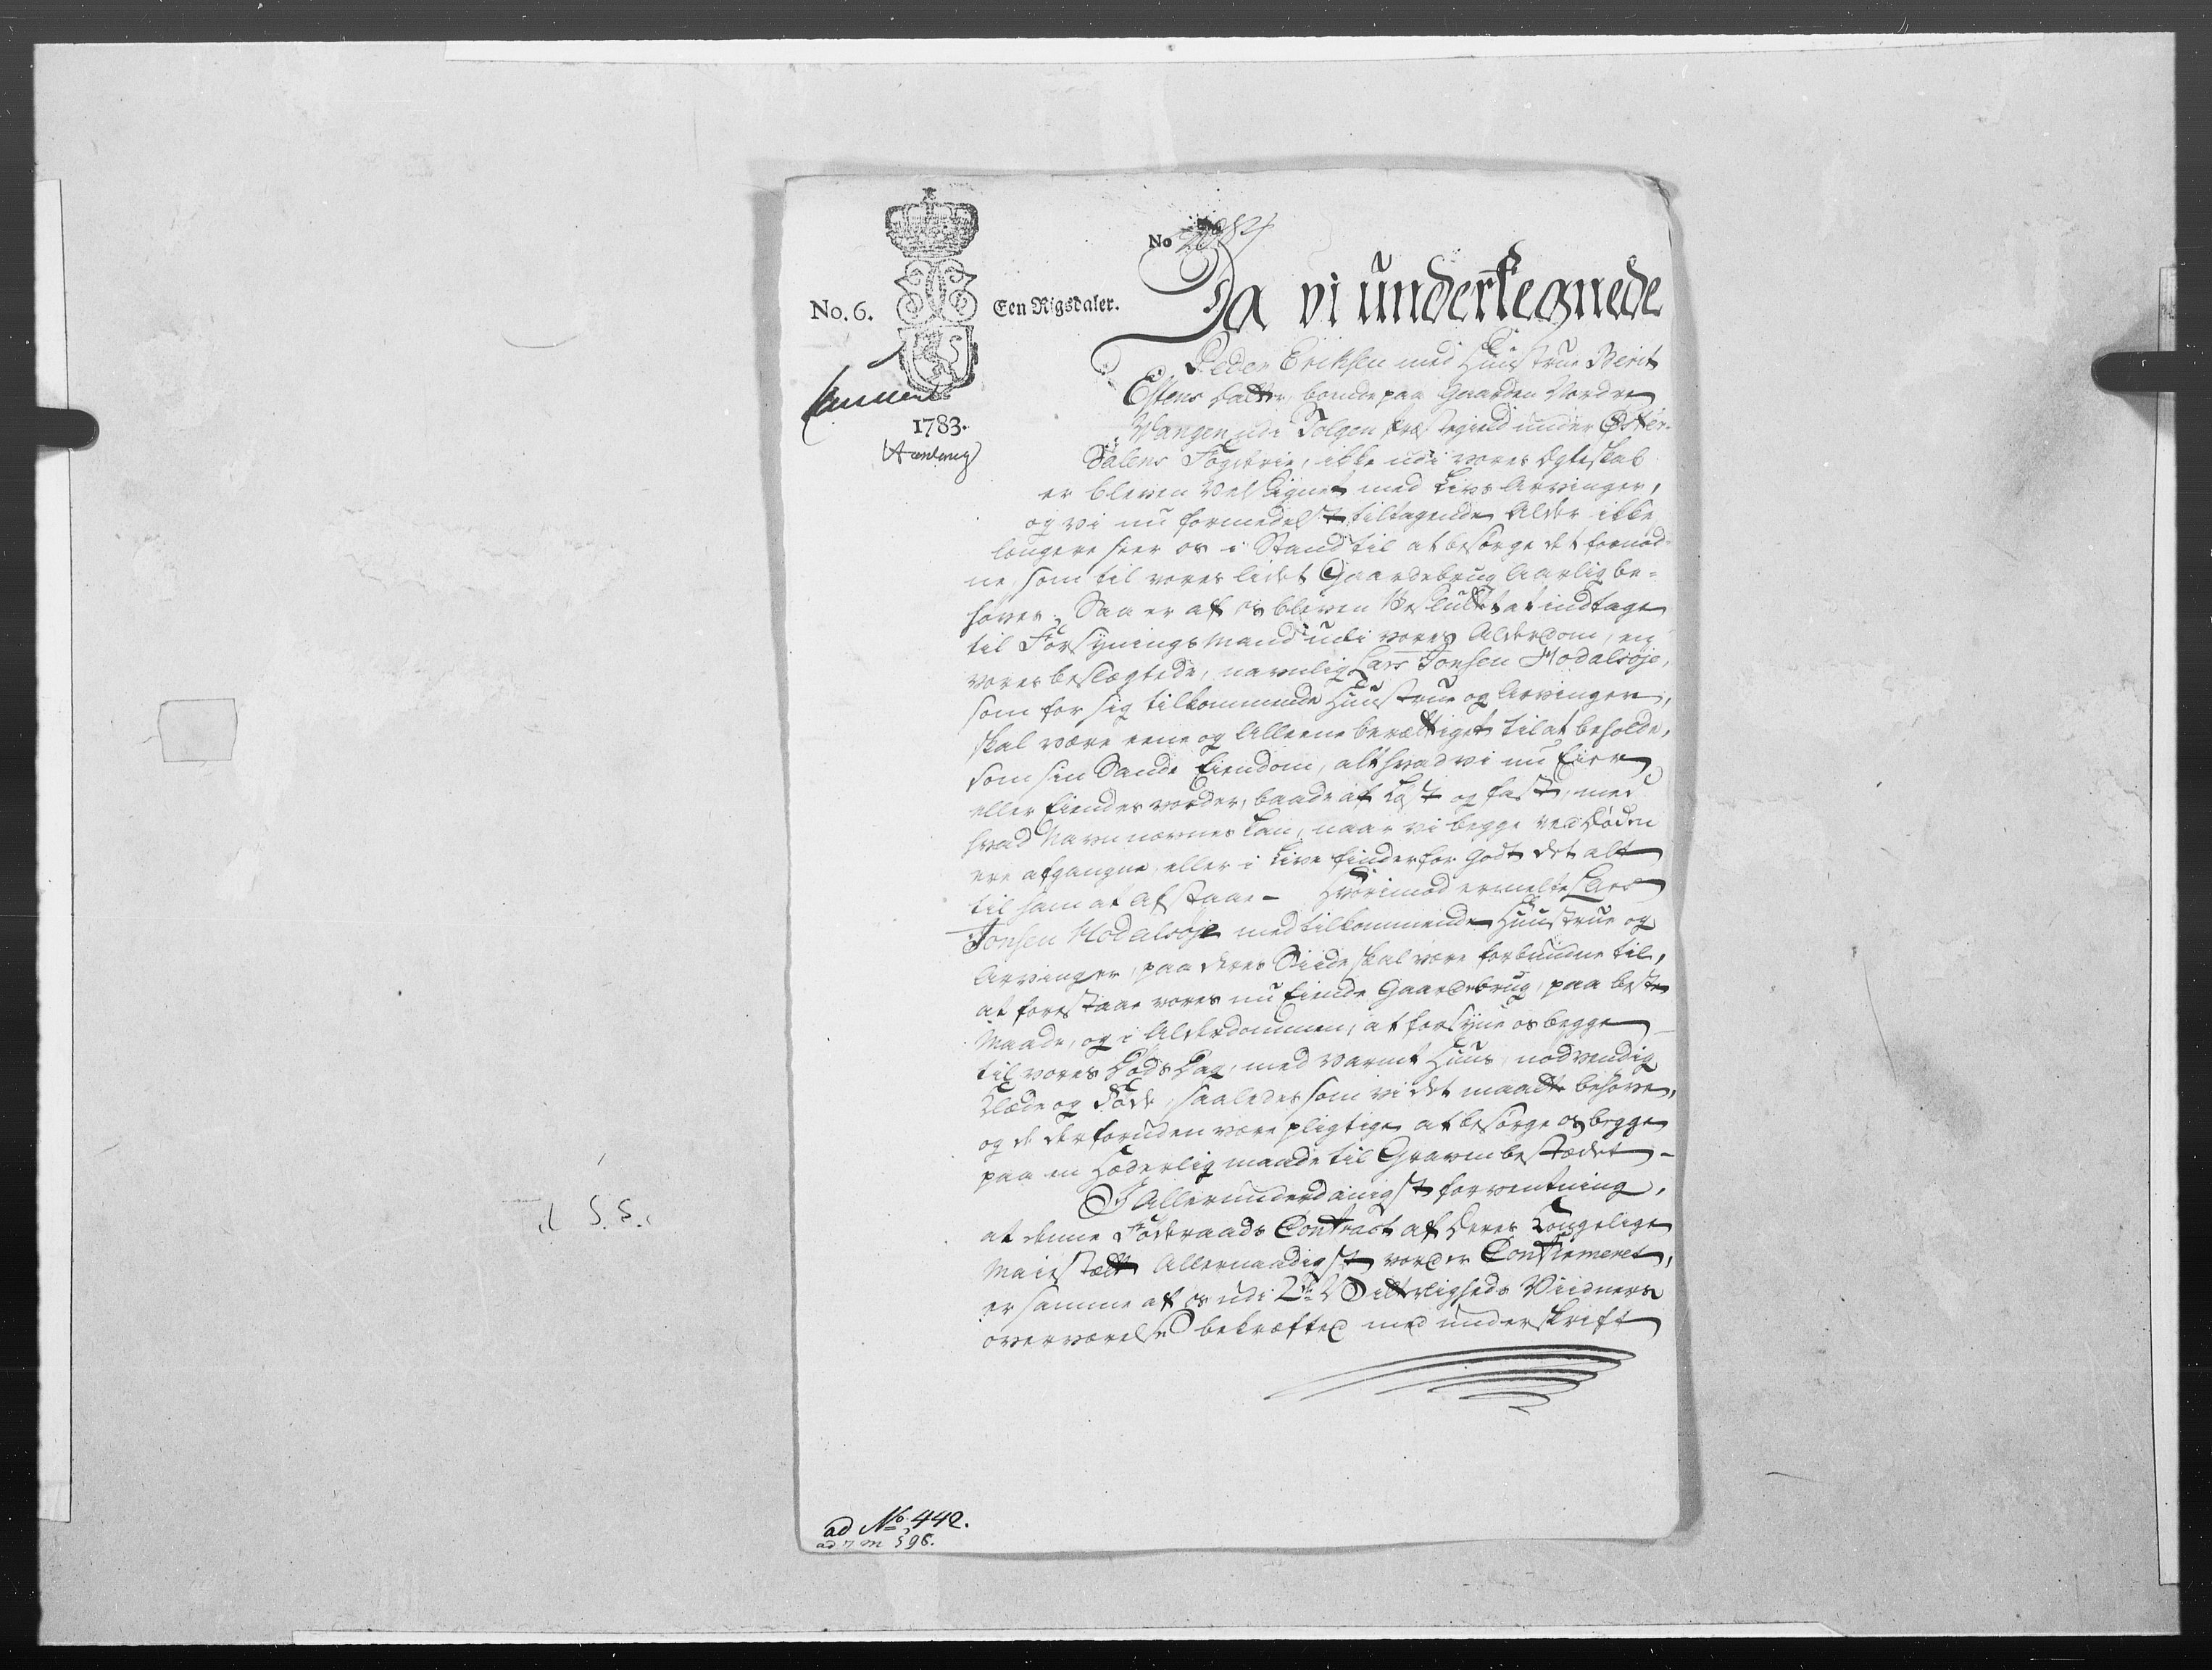 No 2984
No. 6.
Een Rigsdaler.
1783.
Da vi undertegnede
Peder Eriksen med Huustrue Berit
Estens datter, bonde paa Gaarden Nordre
Wangen udi Tolgen Præstegield under Øster-
dalens Fogderie, ikke udi vores Ægteskab
er bleven Velsignet med Livs Arvinger,
og vi nu formedelst tiltagende Alder ikke
længere seer os i Stand til at besørge det fornød-
ne, som til vores lidet Gaardebrug Aarlig be-
høves; Saa er af os bleven Besluttet at indtage
til Forsyningsmand udi vores Alderdom, en
vores beslægtede, navnlig Lars Jonsen Hodalsøje,
som for sig tilkommende Huustrue og Arvinger,
skal være eene og Alleene berættiget til at beholde,
som sin Sande Eiendom, alt hvad vi nu Eier
eller Eiendes vorder, baade af Løst og fast, med
hvad Navn nævnes kan, naar vi begge ved Døden
ere afgangne eller i Live finder for godt det alt
til ham at afstaae – Hvorimod ermelte Lars
Jonsen Hodalsøje med tilkommende Huustrue og
Arvinger, paa deres Siide skal være forbundne til,
at forestaae vores nu Eiende Gaardebrug, paa beste
Maade, og i Alderdommen, at forsyne os begge
til vores Døds Dag, med varmt Huus, nødvendig
Klæde og Føde, saaledes som vi det maatte behøve,
og de desforuden være pligtige at besørge os begge
paa en Hæderlig maade til Graven bestædet –
I Allerunderdanigst forventning,
at denne Føderaads Contract af Deres Kongelige
Maiestætt Allernaadigst vorder Confirmeret,
er samme af os udi 2de Vitterligheds Viidners
overværelse bekræftet med underskrift
ad No. 442.
ad 7 m 598.